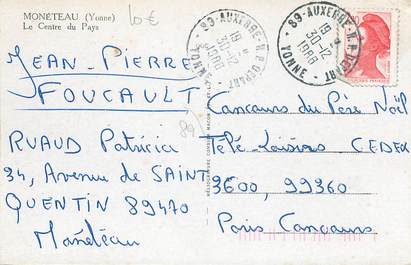 MONÉTEAU (Yonne)
Le Centre du Pays
10€
89-AUXERRE-R.P. DEPART
19 H
30-12
1988
YONNE
89-AUXERRE-R.P. DEPART
19 H
30-12
1988
YONNE
JEAN-PIERRE
FOUCAULT
89
RUAUD Patricia
34, Avenue de SAINT
QUENTIN 89470
Monéteau
Concours du Père Noël
Télé-Loisirs CEDEX
3600, 99360
Paris Concours